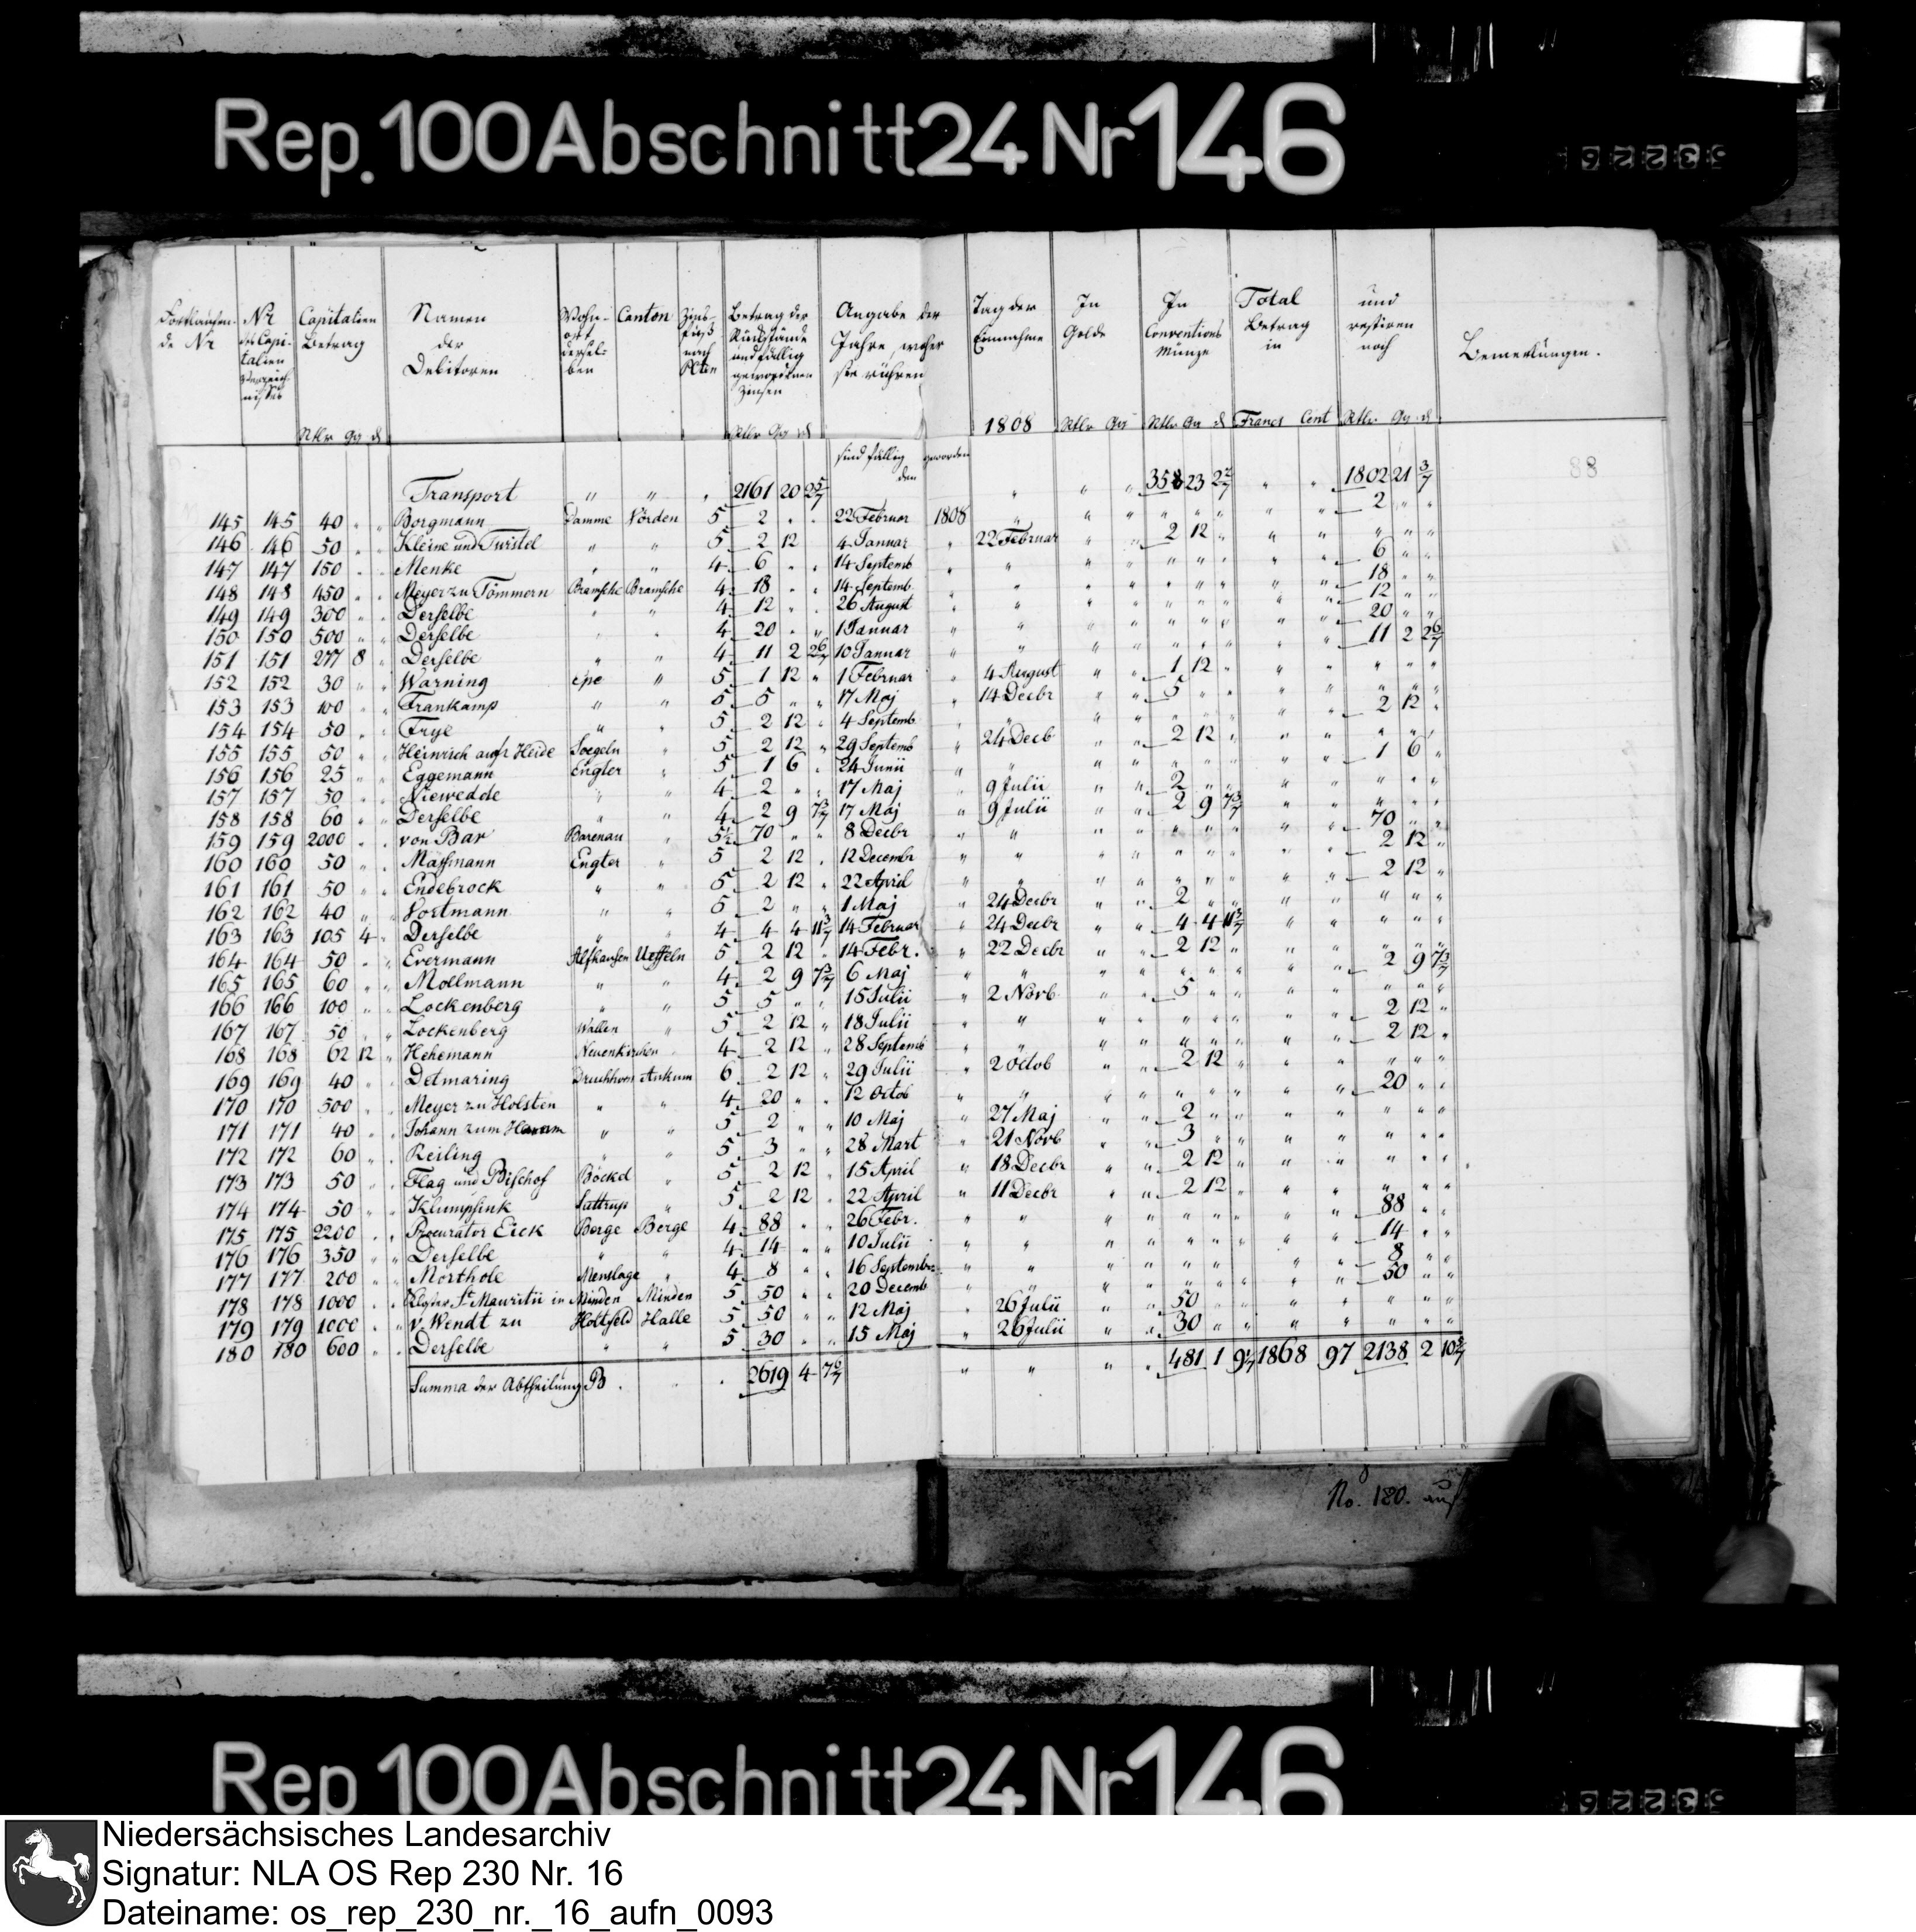 Rep. 100 Abschnitt 24 Nr 146
Fortlaufende Nr | Nr des Capitalien Verzeichnisses | Capitalien Betrag | Namen der Debitoren | Wohnort derselben | Canton | Zinsfuß nach PCten | Betrag der Rückstände und fällig gewordenen Zinsen | Angabe der Jahre, woher sie rühren | Tag der Einnahme | In Golde | In Conventions Münze | Total Betrag in | und restiren noch | Bemerkungen.
Rtlr Gg d | Rtlr Gg d | 1808 | Rtlr Gg | Rtlr Gg d | Francs Cent | Rtlr Gg d
sind fällig geworden den
88
Transport " " " 2161 20 2 5/7 " " " 358 23 2 2/7 " " 1802 21 3/7
145 145 40 " " Borgmann Damme Vörden 5 2 " " 22 Februar 1808 " " " " " " " " 2 " "
146 146 50 " " Kleine und Twistel " " 5 2 12 4 Januar " 22 Februar " " 2 12 " " " " " "
147 147 150 " " Menke " " 4 6 " " 14 Septemb " " " " " " " " " 6 " "
148 148 450 " " Meyer zu Tömmern Bramsche Bramsche 4 18 " " 14 Septemb. " " " " " " " " " 18 " "
149 149 300 " " Derselbe " " 4 12 " " 26 August " " " " " " " " " 12 " "
150 150 500 " " Derselbe " " 4 20 " " 1 Januar " " " " " " " " " 20 " "
151 151 277 8 " Derselbe " " 4 11 2 2 6/7 10 Januar " " " " " " " " " 11 2 2 6/7
152 152 30 " " Warning epe " 5 1 12 " 1 Februar " 4 August " " 1 12 " " " " " "
153 153 100 " " Frankamp " " 5 5 " " 17 Maj " 14 Decbr " " 5 " " " " " " "
154 154 50 " " Frye " " 5 2 12 " 4 Septemb " " " " " " " " " 2 12 "
155 155 50 " " Heinrich aufr Heide Soegeln " 5 2 12 " 29 Septemb " 24 Decb " " 2 12 " " " " " "
156 156 25 " " Eggemann Engter " 5 1 6 " 24 Junii " " " " " " " " " 1 6 "
157 157 50 " " Niewedde " " 4 2 " " 17 Maj " 9 Julii " " 2 " " " " " " "
158 158 60 " " Derselbe " " 4 2 9 7 3/7 17 Maj " 9 Julii " " 2 9 7 3/7 " " " " "
159 159 2000 " " von Bar Barenau " 3½ 70 " " 8 Decbr " " " " " " " " " 70 " "
160 160 50 " " Mäsmann Engter " 5 2 12 " 12 Decembr " " " " " " " " " 2 12 "
161 161 50 " " Endebrock " " 5 2 12 " 22 April " " " " " " " " " 2 12 "
162 162 40 " " Vortmann " " 5 2 " " 1 Maj " 24 Decbr " " 2 " " " " " " "
163 163 105 4 " Derselbe " " 4 4 4 11 3/7 14 Februar " 24 Decbr " " 4 4 11 3/7 " " " " "
164 164 50 " " Evermann Alfhausen Ueffeln 5 2 12 " 14 Febr. " 22 Decbr " " 2 12 " " " " " "
165 165 60 " " Mollmann " " 4 2 9 7 3/7 6 Maj " " " " " " " " " 2 9 7 3/7
166 166 100 " " Lockenberg " " 5 5 " " 15 Julii " 2 Novb " " 5 " " " " " " "
167 167 50 " " Lockenberg Wallen " 5 2 12 " 18 Julii " " " " " " " " " 2 12 "
168 168 62 12 " Hehemann Neuenkirchen " 4 2 12 " 28 Septemb " " " " " " " " " 2 12 "
169 169 40 " " Detmaring Druchhorn Ankum 6 2 12 " 29 Julii " 2 Octob " " 2 12 " " " " " "
170 170 500 " " Meyer zu Holsten " " 4 20 " " 12 Octob " " " " " " " " " 20 " "
171 171 40 " " Johann zum " " 5 2 " " 10 Maj " 27 Maj " " 2 " " " " " " "
172 172 60 " " Reiling " " 5 3 " " 28 Mart " 21 Novb " " 3 " " " " " " "
173 173 50 " " Flag und Bischof Böckel " 5 2 12 " 15 April " 18 Decbr " " 2 12 " " " " " "
174 174 50 " " Klumpsink Suttrup " 5 2 12 " 22 April " 11 Decbr " " 2 12 " " " " " "
175 175 2200 " " Procurator Eick Berge Berge 4 88 " " 26 Febr. " " " " " " " " " 88 " "
176 176 350 " " Derselbe " " 4 14 " " 10 Julii " " " " " " " " " 14 " "
177 177 200 " " Morthole Menslage " 4 8 " " 16 Septembr " " " " " " " " " 8 " "
178 178 1000 " " Kloster St Mauritii in Minden Minden 5 50 " " 20 Decemb " " " " " " " " " 50 " "
179 179 1000 " " v. Wendt zu Holtfeld Halle 5 50 " " 12 Maj " 26 Julii " " 50 " " " " " " "
180 180 600 " " Derselbe " " 5 30 " " 15 Maj " 26 Julii " " 30 " " " " " " "
Summa der Abtheilung B. 2619 4 7 6/7 " " " " 481 1 9 1/7 1868 97 2138 2 10 5/7
No. 180. auf
Rep 100 Abschnitt 24 Nr 146
Niedersächsisches Landesarchiv
Signatur: NLA OS Rep 230 Nr. 16
Dateiname: os_rep_230_nr._16_aufn_0093